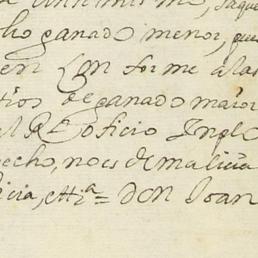 ho ganado menor, que
en conforme a las
tios de ganado maior
el R.l oficio Ynplo
echo, no es de malicia
icia, etta.a = Don Joan